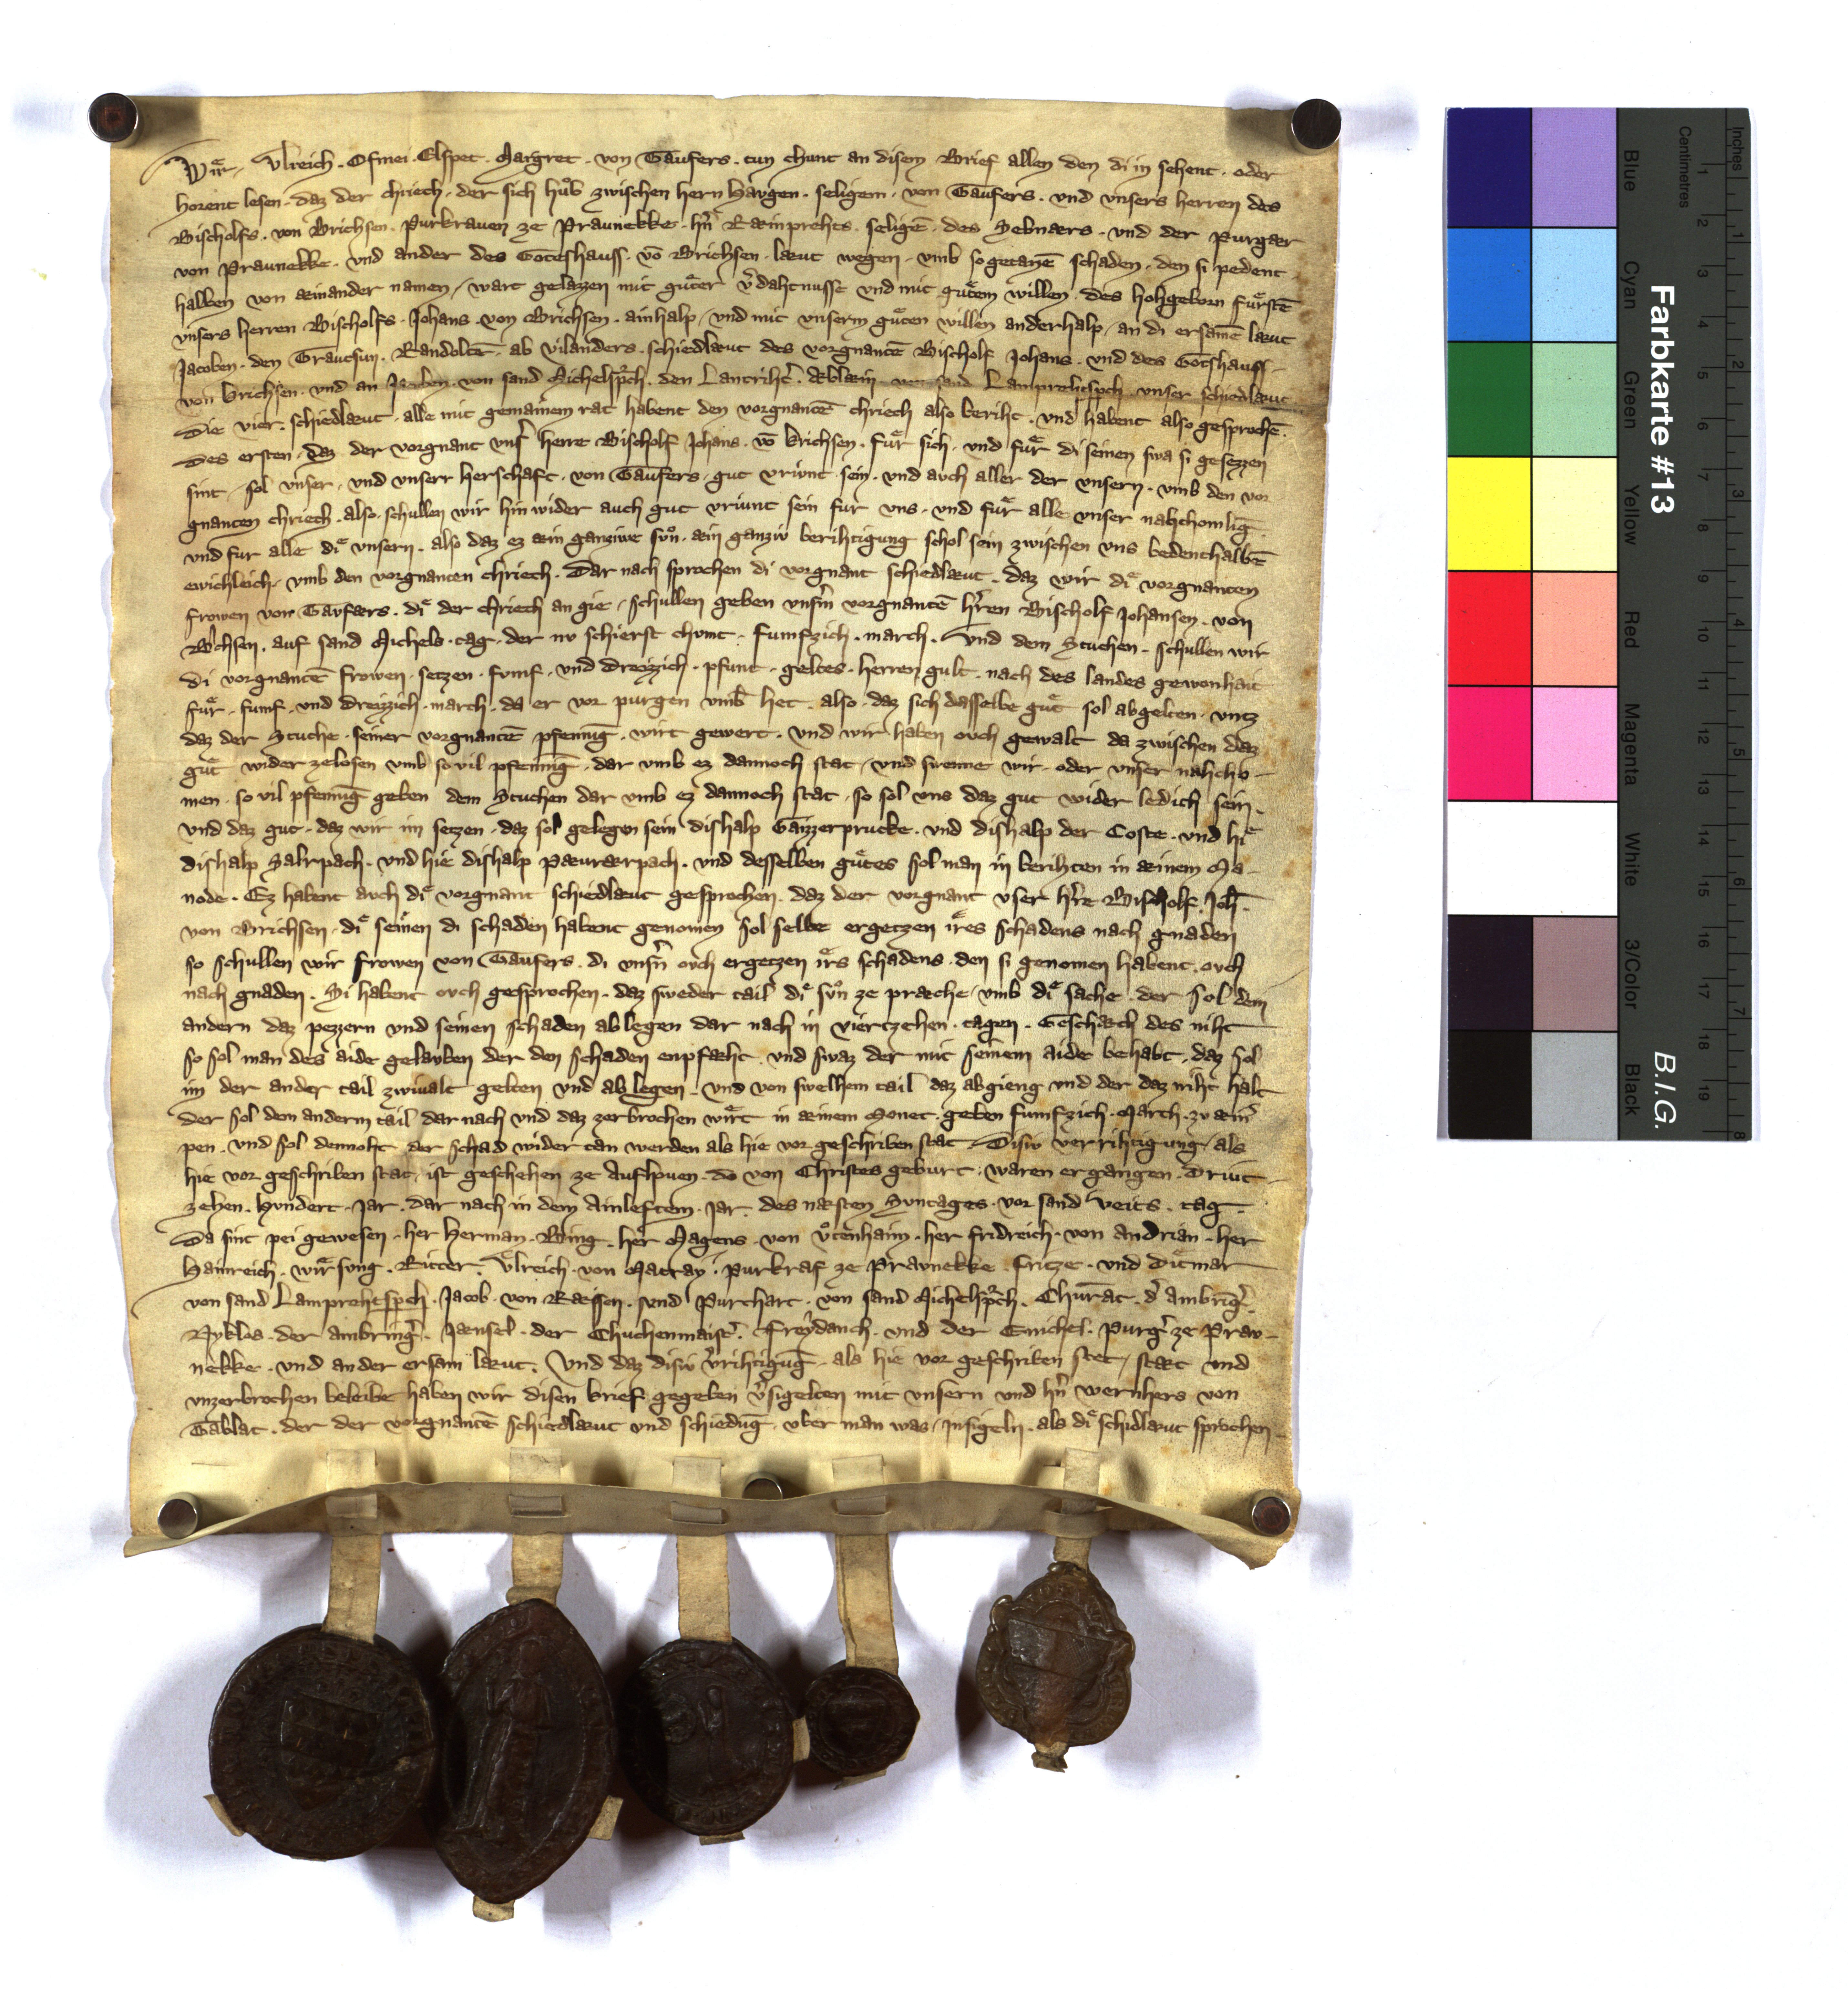 Wir. Vlreich. Ofmei. Elspet. Margret. von Taufers. tun chunt an disem Brief allen den di in sehent. oder
horent lesen. daz der chriech. der sich hůb zwischen hern Haugen. seligem. von Taufers. vnd vnsers herren des
Bischolfs. von Brichsen. Purkrauen ze Praunekke. hn̄ Ræinprehts. seligē. des Sebnærs. vnd der purgær
von Praunekke. vnd ander des Goteshauss. vō Brichsen. læut wegen. vmb so getanē schaden. den si pedent
halben von æinander namen, wart gelazzen mit gůter v̄dahtnusse vnd mit gůtem willen. des hohgeborn fůrstē
vnsers herren Bischolfs. Johans. von Brichsen. ainhalp, vnd mit vnserm gůten willen anderhalp, an di ersamē læut
Jacoben. den Trautsun. Randoltē. ab vilanders. schiedlæut des vorgnantē Bischolf Johans. vnd des Gotshauss.
von Brichsen. vnd an Jacoben. von sand Michelspch. den Lantriht̄. von sand Lamprehtspch. vnser schiedlæut
Die vier. schiedlæut. alle mit gemainem rat habent den vorgnantē chriech also beriht. vnd habent also gesprochē.
Des ersten. daz der vorgnant vnser̄ herre Bischolf Johans. vō Brichsen. fůr sich. vnd fůr di seinen swa si gesezzen
sint, sol vnser. vnd vnserr herschaft. von Taufers. gut vriunt sein. vnd auch aller der vnsern. vmb den vor
gnanten chriech. also schullen wir hin wider auch gut vriunt sein fur vns. vnd fůr alle vnser nahchomlīg
vnd fur alle di vnsern. also daz ez æin ganziwe sůn. æin ganziv berihtigung schol sein zwischen vns bedenthalbē
ewichleich. vmb den vorgnanten chriech. Dar nach sprochen di vorgnant schiedlæut. daz wir di vorgnanten
frowen von Taufærs. di der chriech an gie, schullen geben vnserm̄ vorgnantē hr̄ren Bischolf Johansen. von
Br̄chsen. auf sand Michels. tag. der nv schierst chumt. fumfzich. march. Vnd dem Stuchen. schullen wir
di vorgnantē frowen. setzen. fvmf. vnd dreizzich. pfunt. geltes. herren gult. nach des landes gewonhait
fůr. fumf. vnd dreizzich. march. da er vor purgen vmb het. also. daz sich dasselbe gůt sol abgelten. vntz
daz der Stuche. seiner vorgnantē pfennīg. wirt gewert. vnd wir haben ovch gewalt da zwischen daz
gůt wider zelosen vmb so vil pfennīg. dar vmb ez dannoch stat, vnd swenne wir. oder vnser nahcho-
men. so vil pfennīg geben dem Stuchen dar vmb ez dannoch stat. so sol vns daz gut wider ledich sein.
vnd daz gut. daz wir im setzen. daz sol gelegen sein dishalp Gaizzerprucke. vnd dishalp der Coste. vnd hi
dishalp Salrpach. vnd hie dishalp Pæurærpach. vnd desselben gůtes sol man in berihten in æinem Ma-
node. Ez habent auch di vorgnant schiedlæut gesprochen. daz der vorgnant vser hr̄re Bischolf. Joh̄.
von Brichsen. di seinen di schaden habent genomen sol selbe ergetzen ires schadens nach gnaden
so schullen wir frowen von Taufers. di vnser̄n ovch ergetzen irs schadens. den si genomen habent. ovch
nach gnaden. Si habent ovch gesprochen. daz sweder tail di sůn ze præche, vmb di sache. der sol dem
andern daz pezzern vnd seinen schaden ablegen dar nach in viertzehen. tagen. Geschæch des niht
so sol man des aide gelauben der den schaden enpfæht. vnd swaz der mit seinem aide behabt, daz sol
im der ander tail zwivalt gelten vnd ab legen. vnd von swelhem tail daz abgieng vnd der daz niht halt
der sol dem anderm tail dar nach vnd daz zerbrochen wirt in æinem Monet. geben fumfzich. March. zv æin̄
pen. vnd sol dennoht der schad wider tan werden als hie vor geschriben stat. Disiv verrihtigung, als
hie vor geschriben stat, ist geschehen ze Aufhouen. do von Christes geburt. waren ergangen. Driut-
zehen. Hvndert. Jar. dar nach in dem Ainleftem. Jar. des næsten Svntages. vor sand Veits. tag.
Da sint pei gewesen. her Herman. Ring. her Magens. von Vtenhaim. her fridreich. von Andrian. her
Hainreich. wirsvng. Ritter. Vlreich. von Matray. purkraf ze Pravnekke. Fritze. vnd Ditmar
von sand Lamprehtspch. Jacob. von Ræssen. vnd Purchart. von sand Michelspch. Chůrat. d̄ Ambrīḡ.
Nyklos. der ambrinḡ. Jænsel. der Chuchenmaist̄. Freydanch. vnd der Enichel. purḡ ze Prav-
nekke. vnd ander ersam læut. Vnd daz disiv v̄rihtigūg. als hie vor geschriben stet, stæt vnd
vnzerbrochen beleibe haben wir disen brief gegeben v̄sigelten mit vnsern vnd hn̄ wernhers von
Tablat. der der vorgnantē schiedlæut vnd schiedūg. vber man was, Insigeln. als di schidlæut sprochen.
Farbkarte #13
B.I.G.
Inches
Centimetres
1 2 3 4 5 6 7 8
1 2 3 4 5 6 7 8 9 10 11 12 13 14 15 16 17 18 19
Blue
Cyan
Green
Yellow
Red
Magenta
White
3/Color
Black